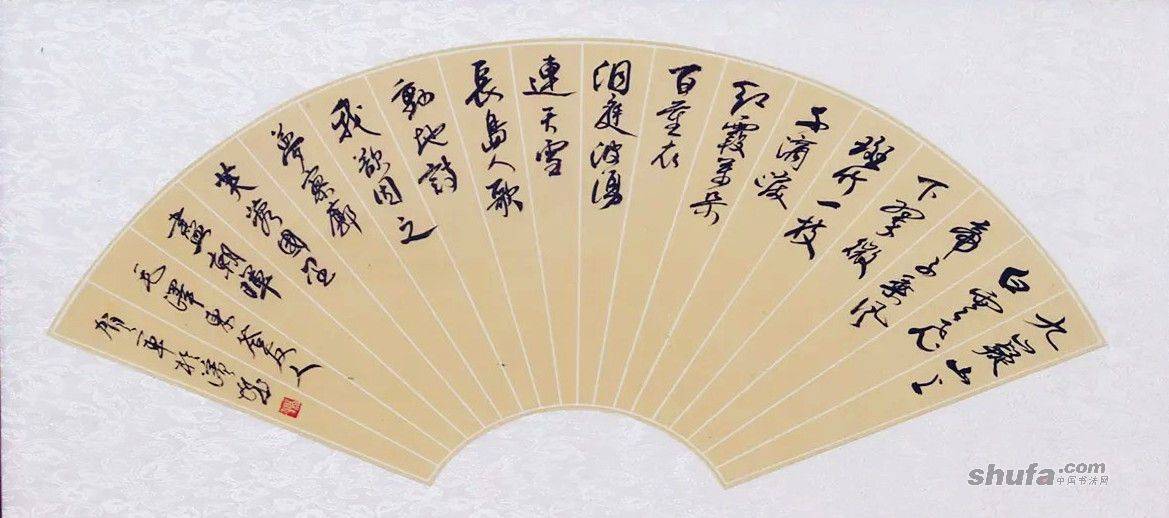 九嶷山上
白雲飛
帝子乘風
下翠微
斑竹一枝
千滴淚
紅霞萬朵
百重衣
洞庭波湧
連天雪
長島人歌
動地詩
我欲因之
夢寥廓
芙蓉國里
盡朝暉
毛澤東答友人
shufa.com
中国书法网